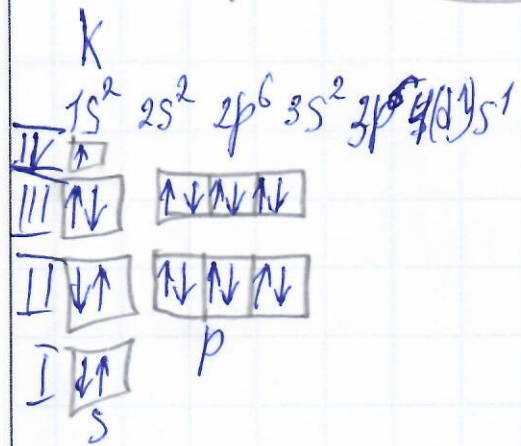 K
1s² 2s² 2p⁶ 3s² 3p⁶ 4(d¹)s¹
IV ↑
III ↑↓ ↑↓ ↑↓ ↑↓
II ↓↑ ↑↓ ↑↓ ↑↓
p
I ↓↑
s